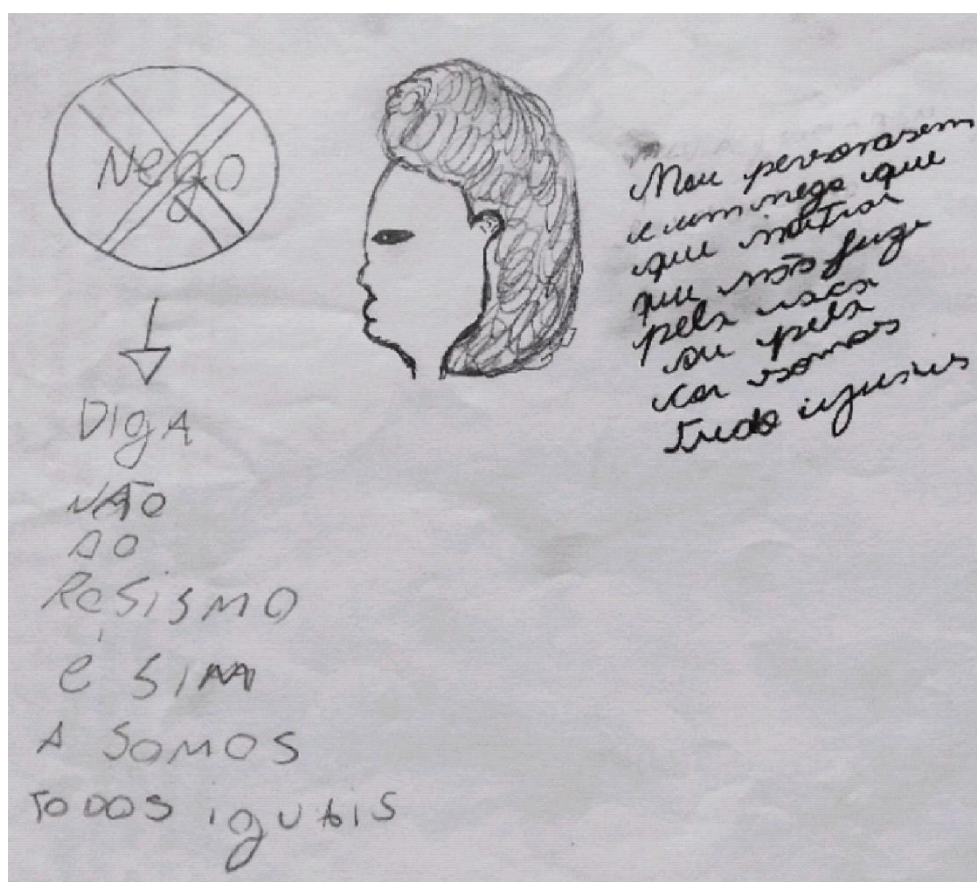 Nego
DIgA
NÃO
AO
ReSISMO
é SIM
A SOMOS
TODOS iguais
Meu personasem
e um nego que
que
que não fuge
pela raca
ou pela
cor somos
tudo